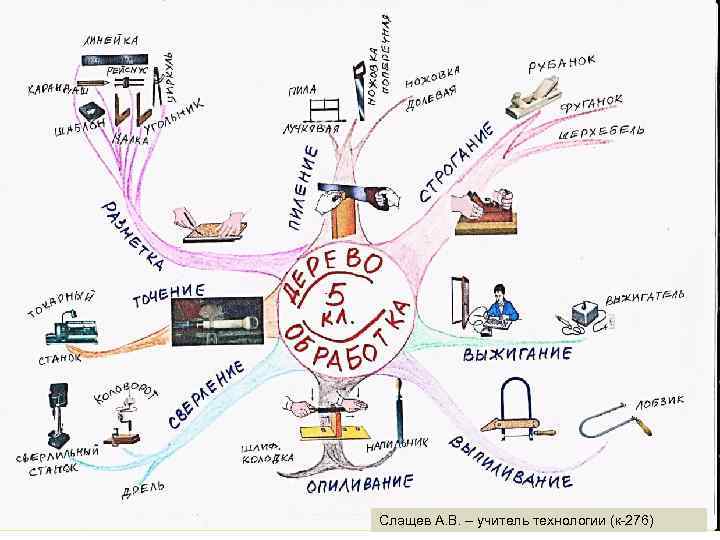 ЛИНЕЙКА
РЕЙСМУС
ЦИРКУЛЬ
КАРАНДАШ
ШАБЛОН
МАЛКА
УГОЛЬНИК
РАЗМЕТКА
ПИЛА
ЛУЧКОВАЯ
НОЖОВКА
ПОПЕРЕЧНАЯ
НОЖОВКА
ДОЛЕВАЯ
ПИЛЕНИЕ
РУБАНОК
ФУГАНОК
ШЕРХЕБЕЛЬ
СТРОГАНИЕ
ДЕРЕВО
5
КЛ.
ОБРАБОТКА
ТОКАРНЫЙ
СТАНОК
ТОЧЕНИЕ
ВЫЖИГАТЕЛЬ
ВЫЖИГАНИЕ
КОЛОВОРОТ
СВЕРЛИЛЬНЫЙ
СТАНОК
ДРЕЛЬ
СВЕРЛЕНИЕ
ШЛИФ.
КОЛОДКА
НАПИЛЬНИК
ОПИЛИВАНИЕ
ЛОБЗИК
ВЫПИЛИВАНИЕ
Слащев А. В. – учитель технологии (к-276)